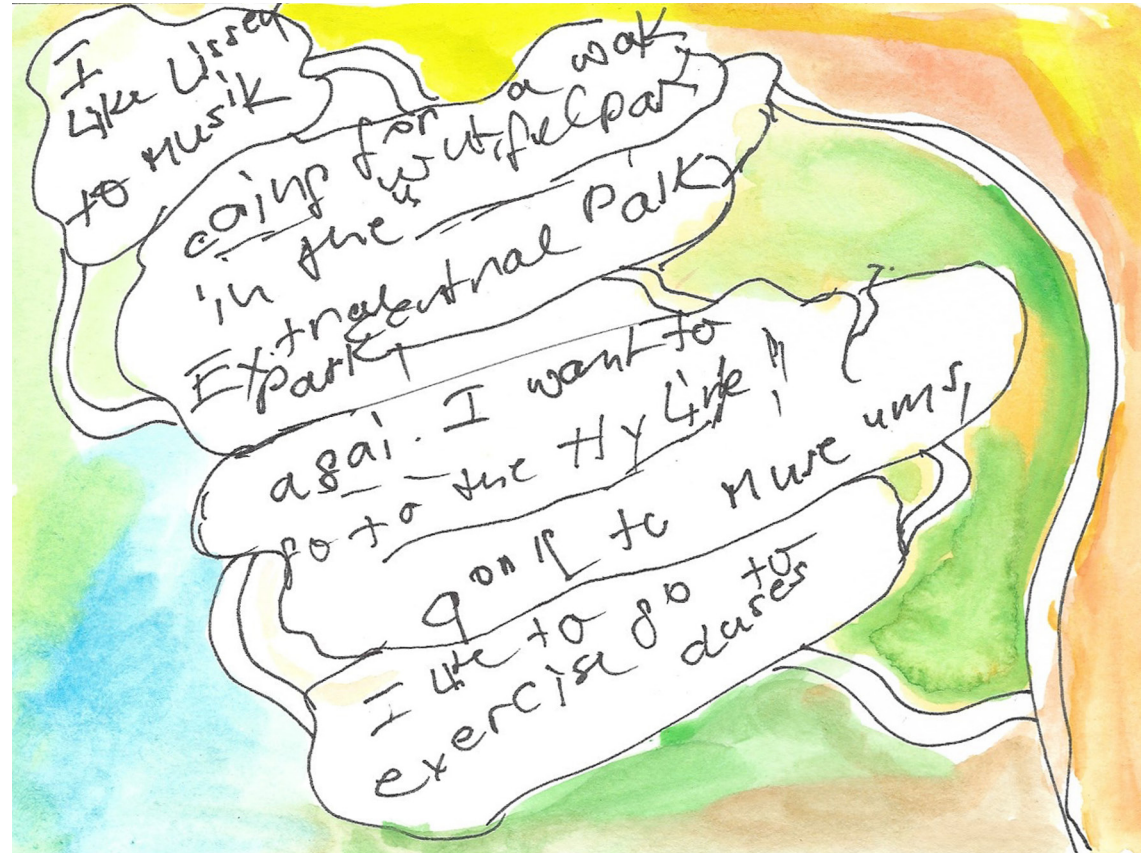 I
Like Lissey
to Musik
going for a wak
in the wutifel park
Extral
park Centrnal Palk
asai. I want to
go to the Hy Line!!
gonig to Muse ums,
I like to go to
exercise dases